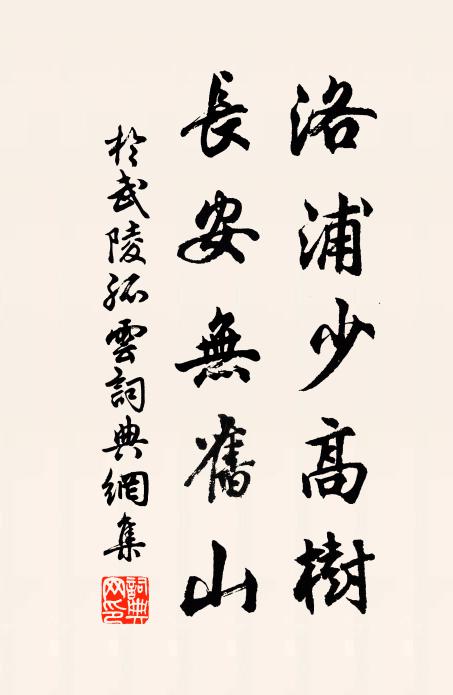 洛浦少高樹
長安無舊山
於武陵孤雲詞典網集
詞典網印